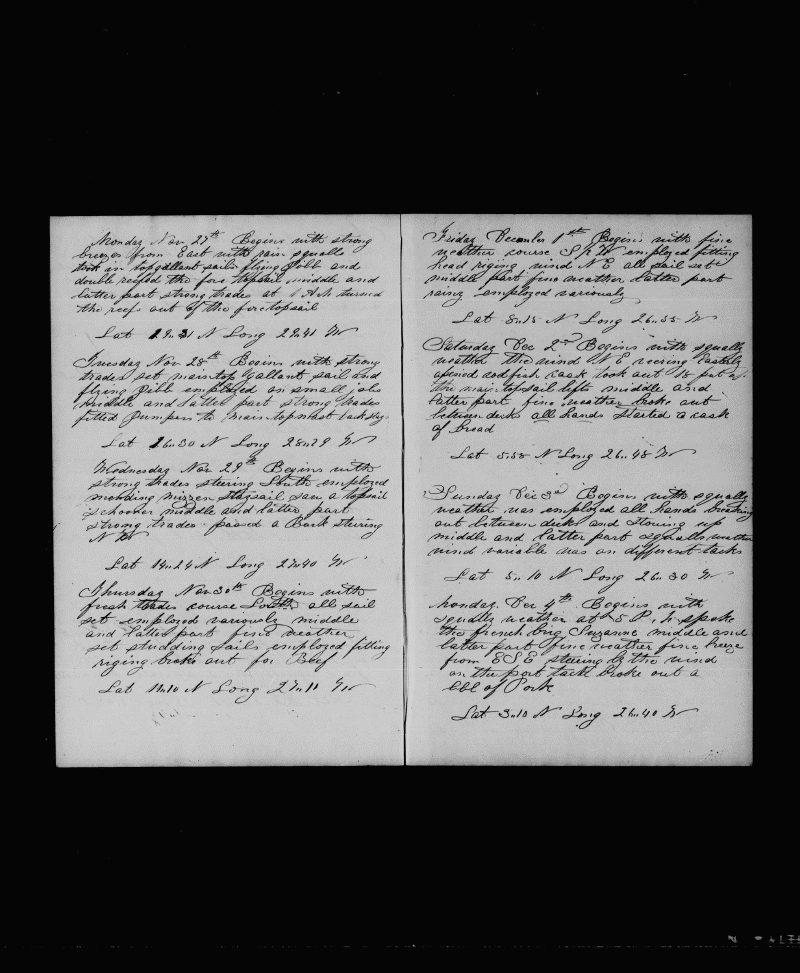 Monday Nov 27th Begins with strong
breezes from East with rain squalls
took in topgallant sails flying Jibb and
double reefed the fore topsail middle and
latter part strong trades at 6 A.M. turned
the reefs out of the foretopsail
Lat 19..31 N Long 29..41 W
Tuesday Nov 28th Begins with strong
trades set maintop Gallant sail and
flying Jibb employed on small jobs
middle and latter part strong trades
fitted Jumpers to maintopmast backstays
Lat 16..30 N Long 28..29 W
Wednesday Nov 29th Begins with
strong trades steering South employed
mending mizzen staysail saw a topsail
schooner middle and latter part
strong trades passed a Bark steering
N W
Lat 14..24 N Long 27..40 W
Thursday Nov 30th Begins with
fresh trades course South all sail
set employed variously middle
and latter part fine weather
set studding sails employed fitting
riging broke out for Beef
Lat 11..10 N Long 27..11 W
Friday December 1st Begins with fine
weather course S by W employed fitting
head riging wind N E all sail set
middle part fine weather latter part
rainy employed variously
Lat 8..15 N Long 26..55 W
Saturday Dec 2nd Begins with squally
weather the wind N E veering Easterly
opened codfish cask took out 18 fat of
the main topsail lifts middle and
latter part fine weather broke out
between decks all hands started a cask
of bread
Lat 5..55 N Long 26..45 W
Sunday Dec 3d Begins with squally
weather was employed all hands breaking
out between decks and stowing up
middle and latter part squally weather
wind variable was on different tacks
Lat 5..10 N Long 26..30 W
Monday Dec 4th Begins with
squally weather at 5 P.M. spoke
the french brig Suzanne middle and
latter part fine weather fine breeze
from ESE steering by the wind
on the port tack broke out a
bbl of Pork
Lat 3..10 N Long 26..40 W